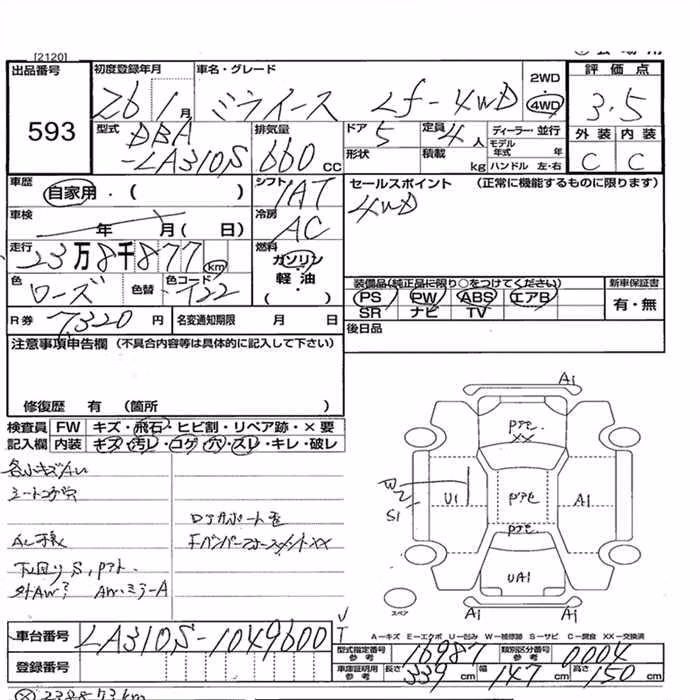 [2120]
出品番号 初度登録年月 車名・グレード 2WD 評価点
593
26 1月 ミライース Lf-4WD 4WD 3.5
型式 DBA-LA310S 排気量 660 cc ドア 5 定員 4人 ディーラー・並行 外装 内装
形状 積載 kg モデル年式 年 ハンドル 左・右 C C
車歴 自家用・( ) シフト 1AT セールスポイント (正常に機能するものに限ります)
4WD
車検 年 月( 日) 冷房 AC
走行 23万8千877 km 燃料 ガソリン
軽油
・( )
色 ローズ 色替 色コード T22 装備品(純正品に限り○をつけてください) 新車保証書
PS PW ABS エアB 有・無
SR ナビ TV
R券 7,320円 名変通知期限 月 日 後日品
注意事項申告欄 (不具合内容等は具体的に記入して下さい)
修復歴 有 (箇所 )
検査員 FW キズ・飛石・ヒビ割・リペア跡・×要
記入欄 内装 キズ・汚レ・コゲ・穴・スレ・キレ・破レ
各小キズAU
シートコゲ穴
下回りS,
A1
XX
W2
S1
U1
A1
UA1
A1 A1
スペア
A-キズ E-エクボ U-凹み W-補修跡 S-サビ C-腐食 XX-交換済
車台番号 LA310S-1049600
型式指定番号 参考 16987 類別区分番号 参考 0004
登録番号 車庫証明用 参考 長さ 339 cm 幅 147 cm 高さ 150 cm
238877km